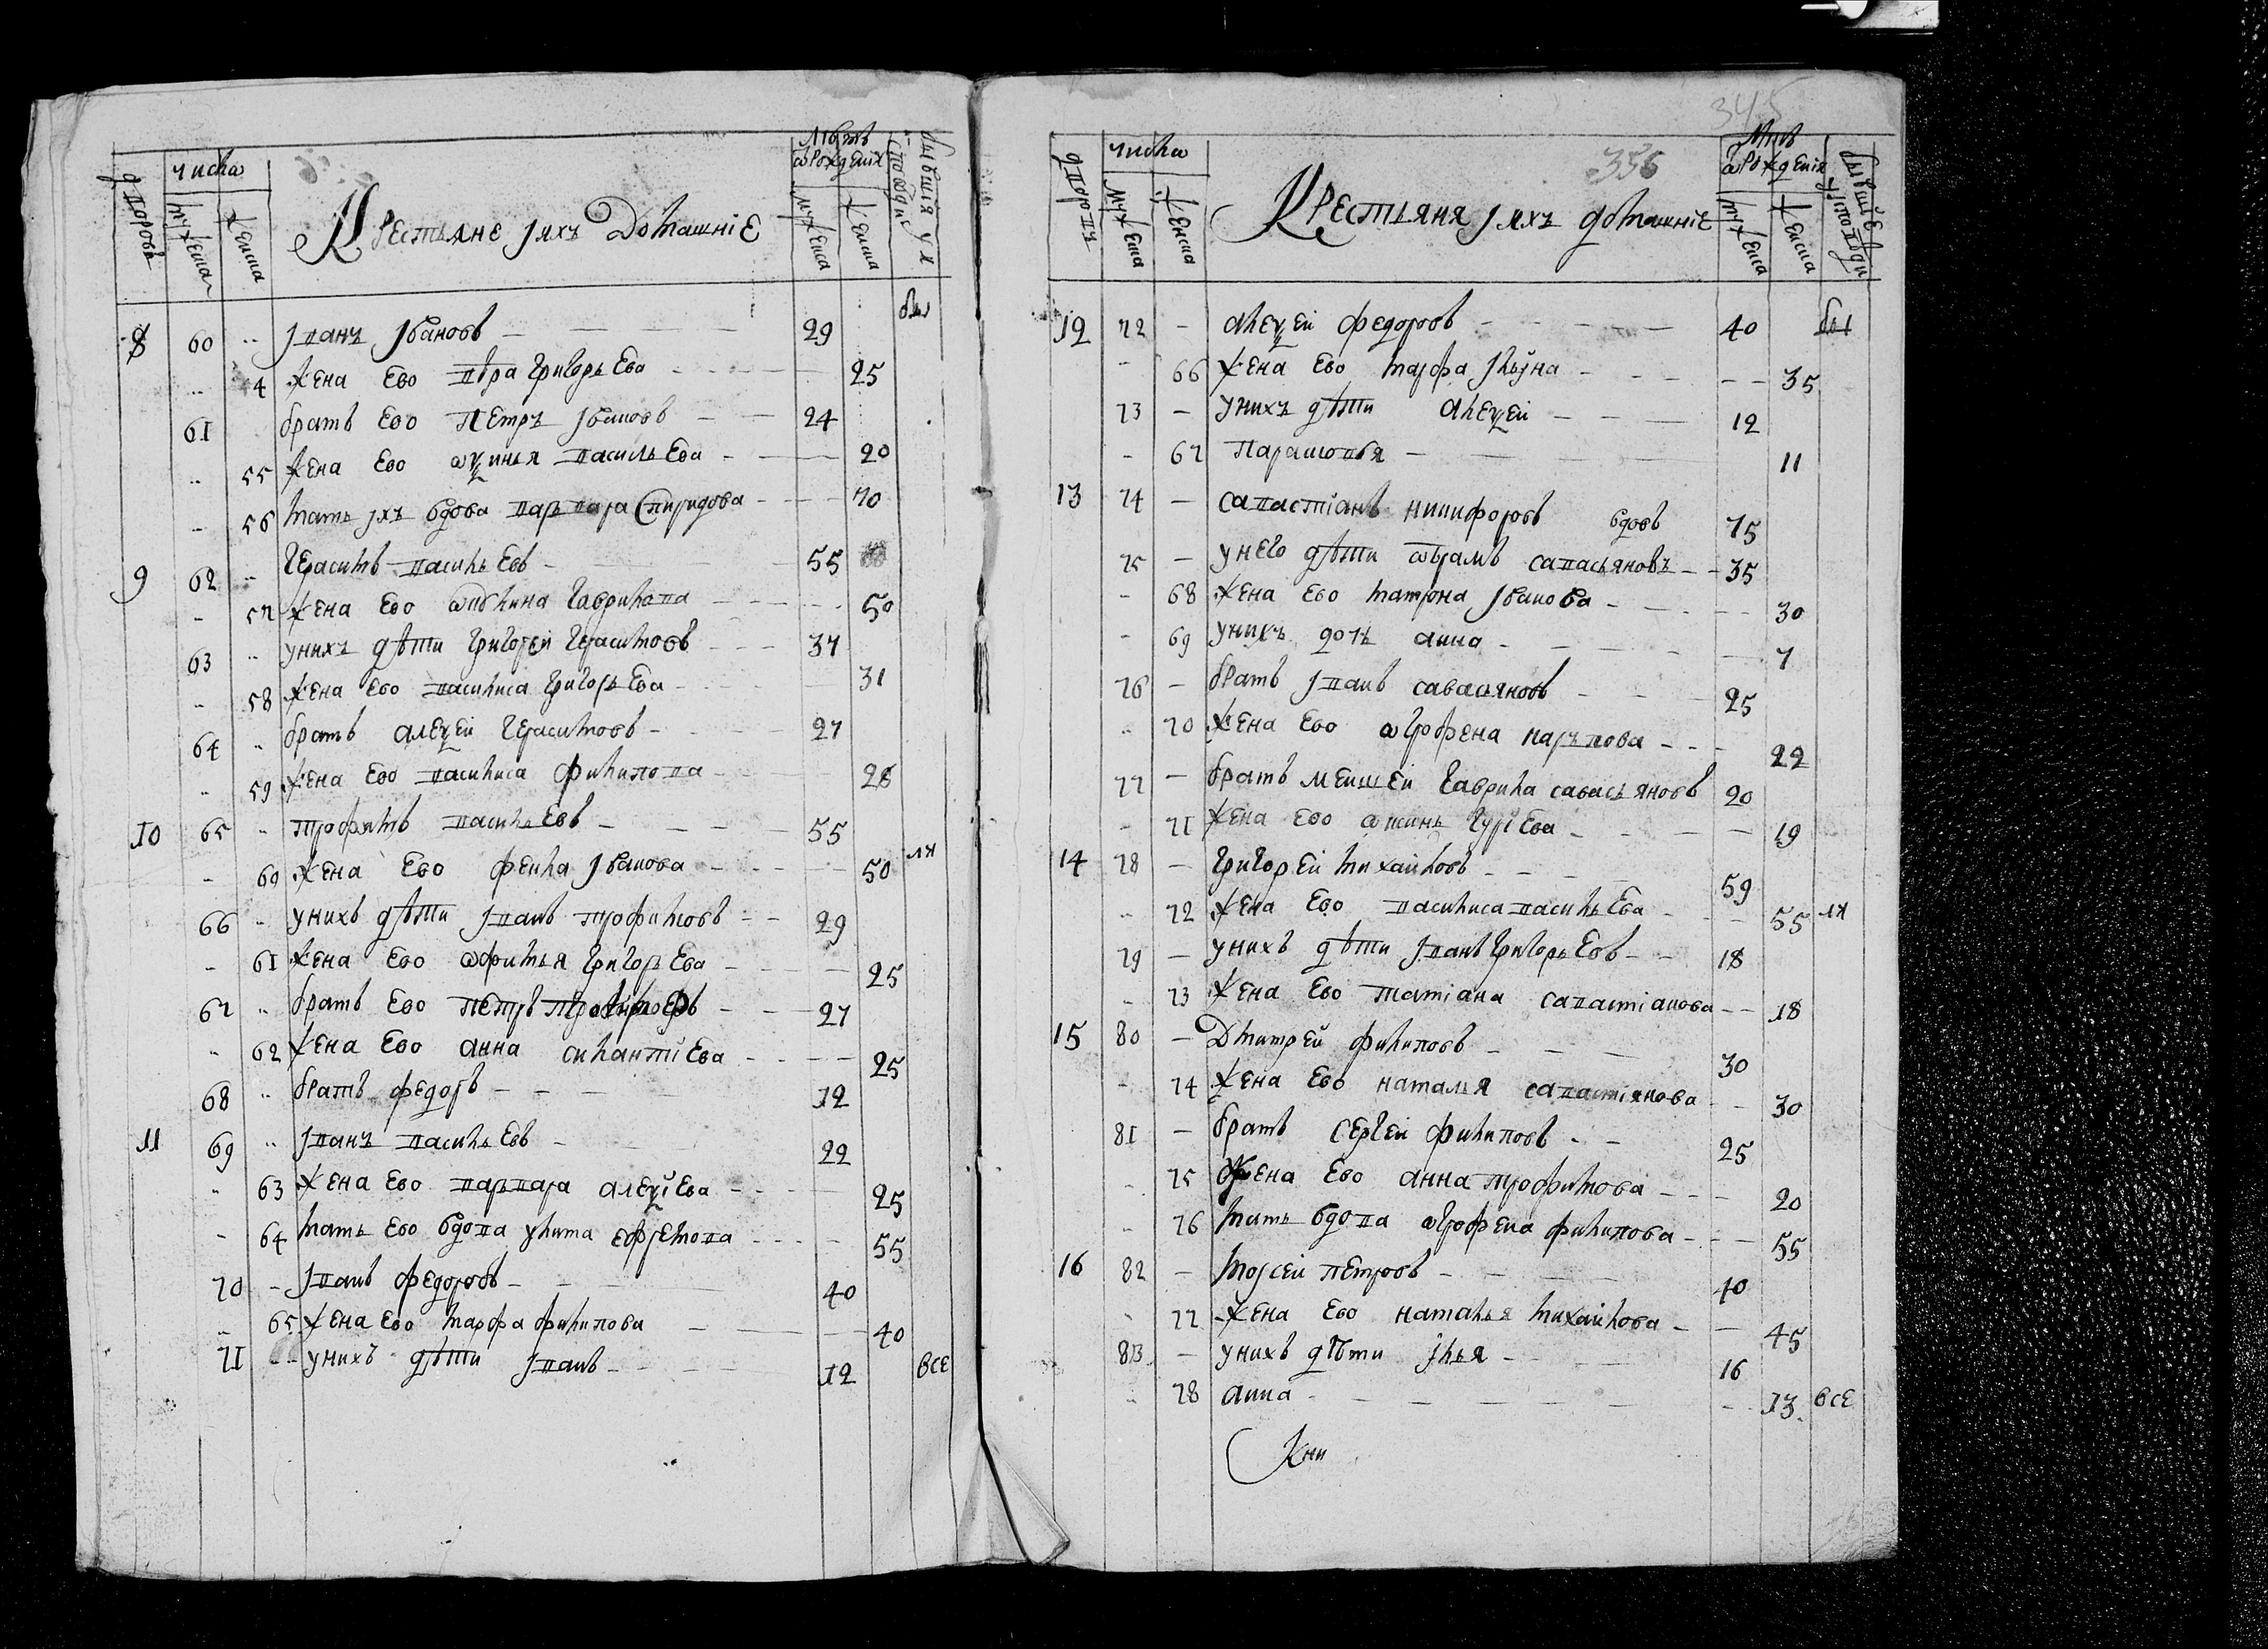 дворовъ
числа
мужеска
женска
Крестьяне ихъ Домашніе
Лѣтъ
ѿ рожденія
мужеска
женска
бывшія у исповѣди
8 60 Іванъ Івановъ 29 бы
54 жена ево Вѣра Григорьева 25
61 братъ ево Петръ Івановъ 24
55 жена ево аѯинья васильева 20
56 мать ихъ вдова варвара Спиридова 70
9 62 Герасимъ васильевъ 55
57 жена ево Гаврилова 50
63 унихъ дѣти Григорей Герасимовъ 37
58 жена ево василиса Григорьева 31
64 братъ алеѯей Герасимовъ 27
59 жена ево василиса филипова 28
10 65 трофимъ васильевъ 55
60 жена ево фекла Іванова 50 ли
66 унихъ дѣти Іванъ трофимовъ 29
61 жена ево афимья Григорьева 25
67 братъ ево петръ трофимовъ 27
62 жена ево анна силантіева 25
68 братъ федоръ 12
11 69 Іванъ васильевъ 22
63 жена ево варвара алеѯіева 25
64 мать ево вдова улита ефремова 55
70 Іванъ федоровъ 40
65 жена ево марфа филипова 40
71 унихъ дѣти Іванъ 12 все
345
356
дворовъ
числа
мужеска
женска
Крестьяня ихъ домашніе
Лѣтъ
ѿ рожденія
мужеска
женска
бывшіе у исповѣди
12 72 алеѯей федоровъ 40 бы
66 жена ево марфа Ільина 35
73 унихъ дѣти алеѯей 12
67 Парасковья 11
13 74 савастіанъ никифоровъ вдовъ 75
75 унего дѣти авърамъ савасьяновъ 35
68 жена ево матрона Іванова 30
69 унихъ дочь анна 7
76 братъ Іванъ савасяновъ 25
70 жена ево аграфена карпова 22
77 братъ меншей Гаврила савасьяновъ 20
71 жена ево аксинь Гуріева 19
14 78 Григорей михайловъ 59
72 жена ево василиса васильева 55 ли
79 унихъ дѣти Іванъ Григорьевъ 18
73 жена ево татіана савастіанова 18
15 80 Дмитрей филиповъ 30
74 жена ево наталья савастіянова 30
81 братъ сергей филиповъ 25
75 жена ево анна трофимова 20
76 мать вдова аграфена филипова 55
16 82 моисей петровъ 40
77 жена ево наталья михайлова 45
83 унихъ дѣти Илья 16
78 анна 13 все
Кни